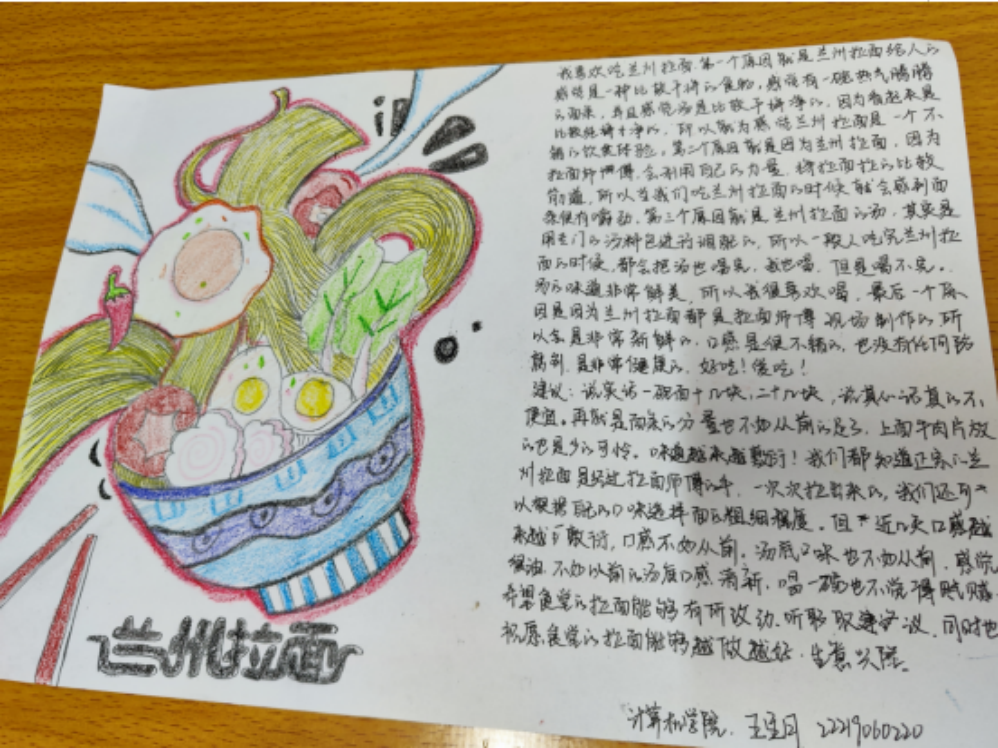 我喜欢吃兰州拉面.第一个原因就是兰州拉面给人的
感觉是一种比较干净的食物,感觉有一碗热气腾腾
的面条,并且感觉汤是比较干净的,因为看起来是
比较纯净干净的,所以就为感觉兰州拉面是一个不
错的饮食体验。第二个原因就是因为兰州拉面,因为
拉面师傅,会利用自己的力量,将拉面拉的比较
筋道,所以当我们吃兰州拉面的时候就会感到面
条很有嚼劲.第三个原因就是兰州拉面的汤,其实是
用专门的汤料包进行调配的,所以一般人吃完兰州拉
面的时候,都会把汤也喝完.我也喝,但是喝不完。
汤的味道非常鲜美,所以我很喜欢喝,最后一个原
因是因为兰州拉面都是拉面师傅现场制作的所
以会是非常新鲜的,口感是很不错的,也没有任何防
腐剂.是非常健康的,好吃!爱吃!
建议:说实话一碗面十几块,二十几块,说真心话真的不
便宜。再就是面条的分量也不如从前的足了,上面牛肉片放
的也是少的可怜。味道越来越敷衍!我们都知道正宗的兰
州拉面是经过拉面师傅的手,一次次拉出来的,我们还可
以根据自己的口味选择面的粗细程度。但 近几天口感越
来越 敷衍,口感不如从前。汤底口味也不如从前,感觉
很油.不如以前的汤底口感清新,喝一碗也不觉得腻.
希望食堂的拉面能够有所改动.听取建议,同时也
祝愿食堂的拉面能够越做越好.生意兴隆。
计算机学院. 22219060220
兰州拉面